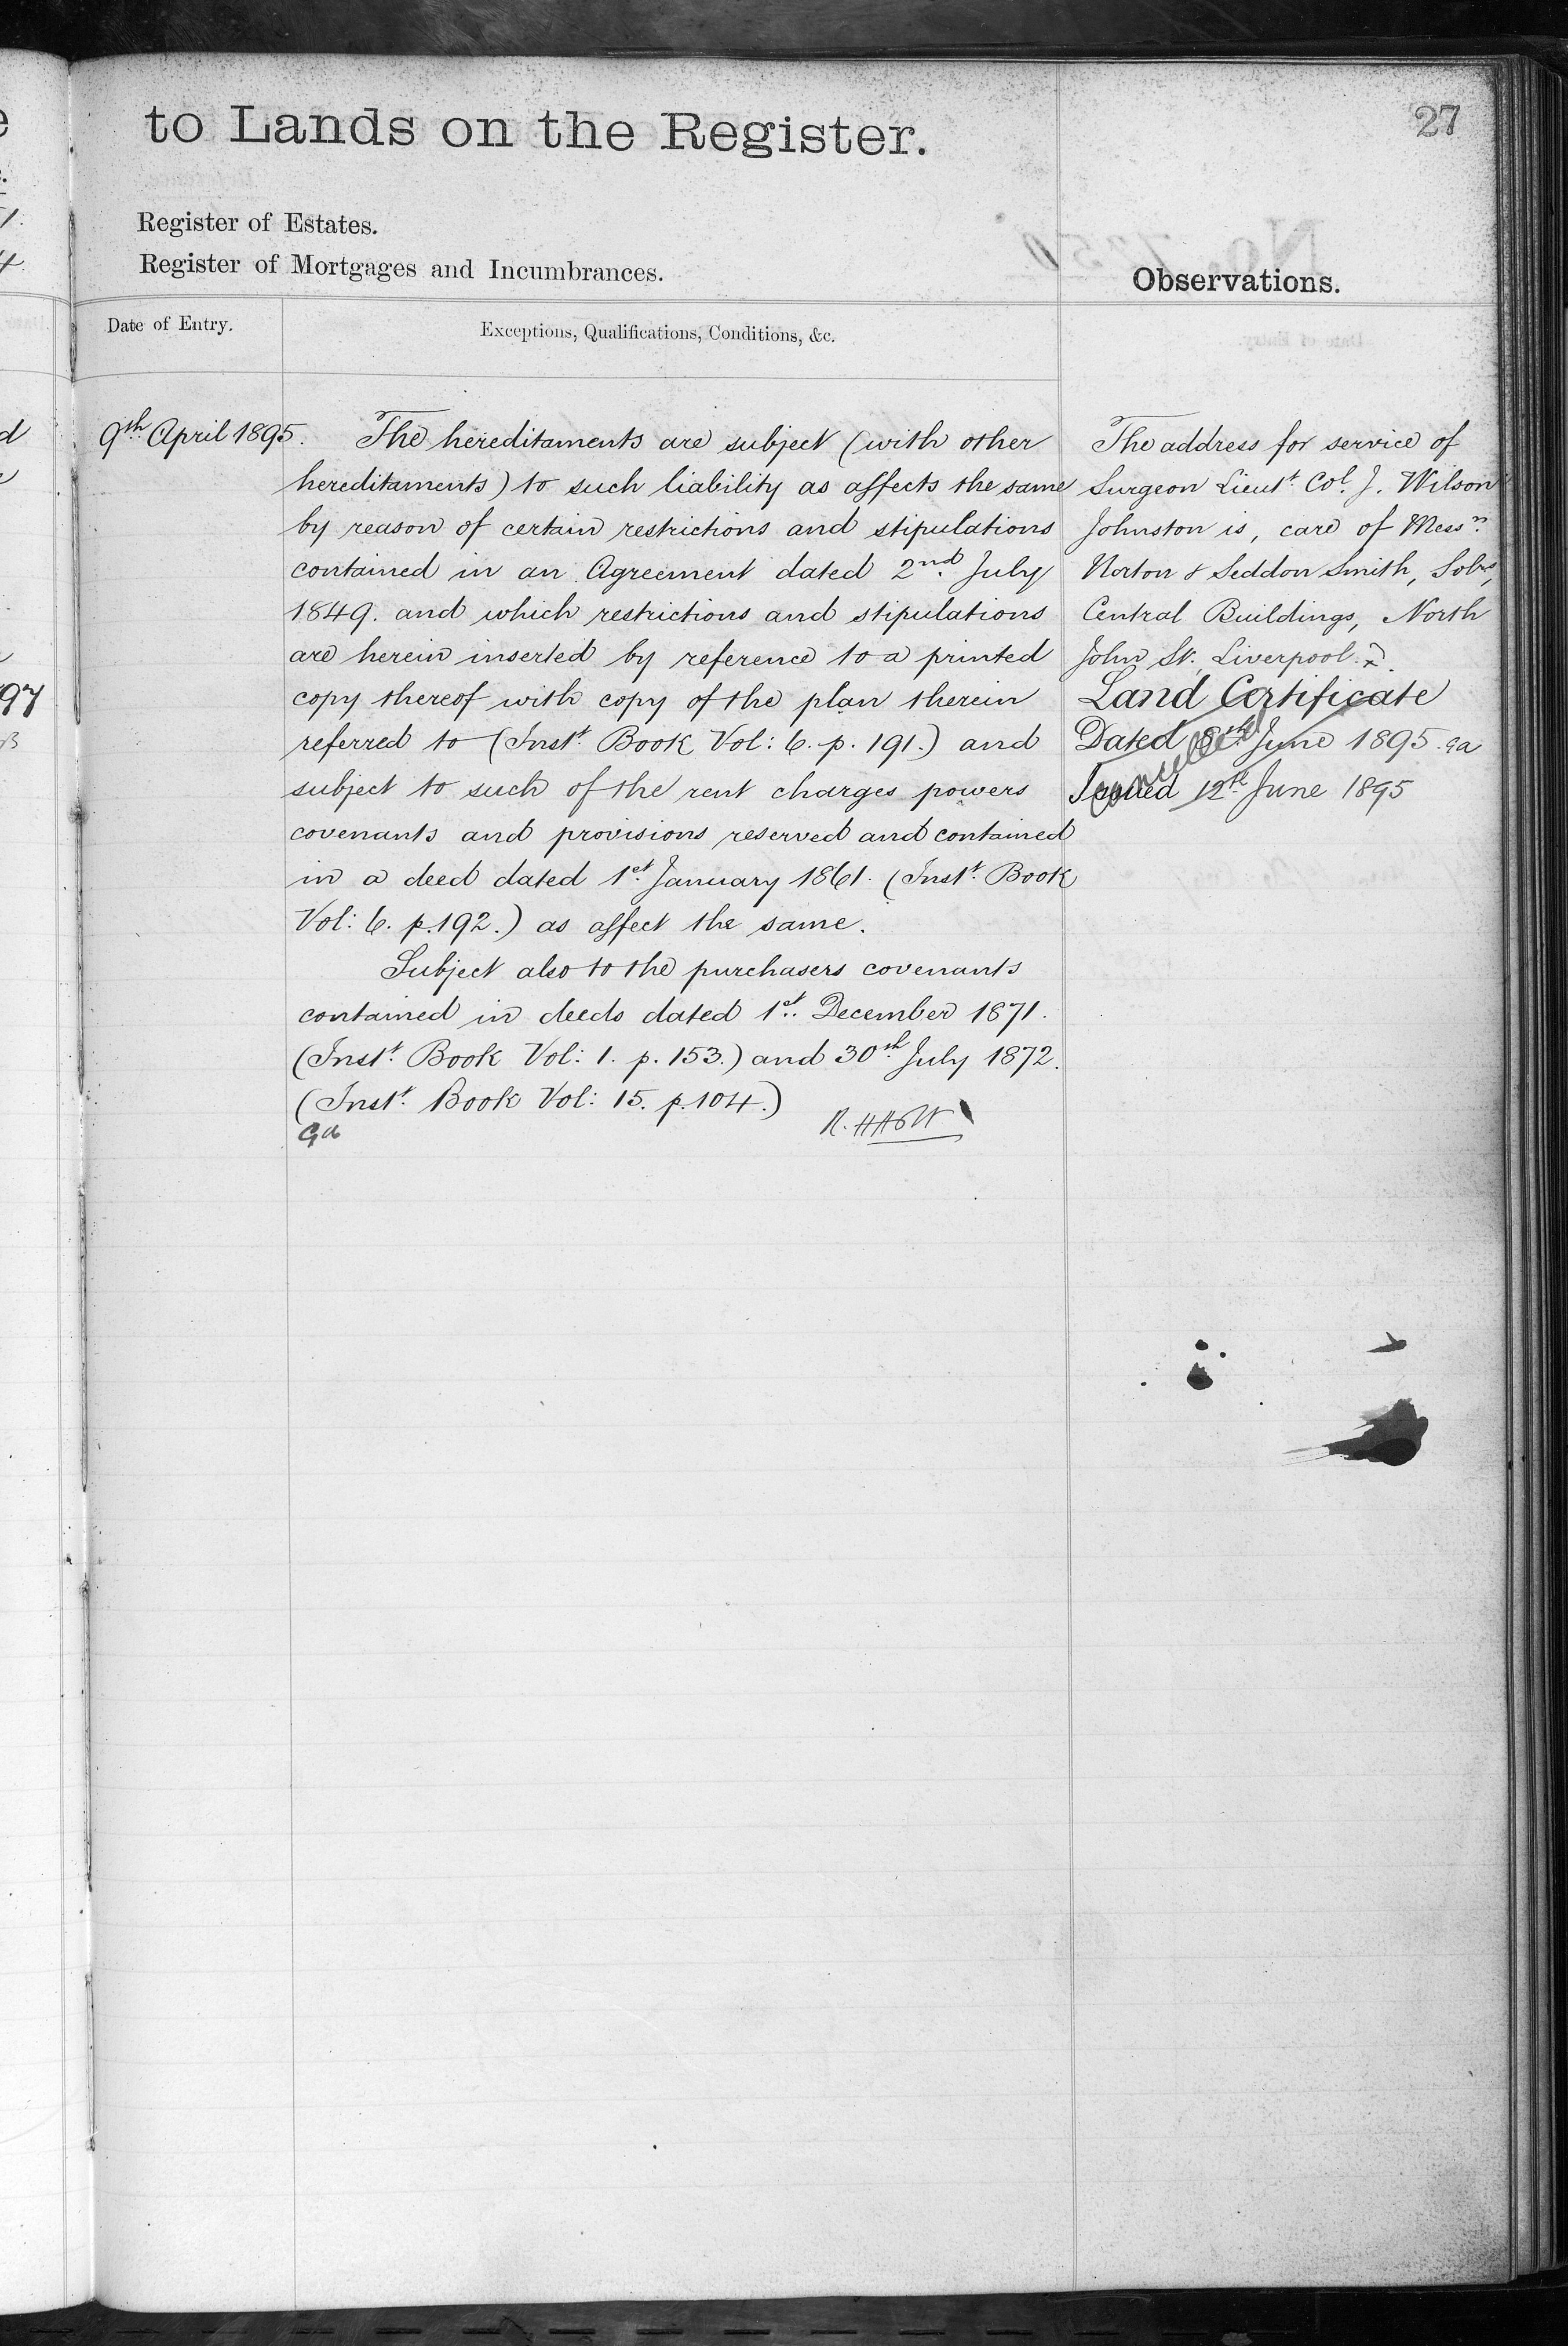 to Lands on the Register.
27
Register of Estates.
Register of Mortgages and Incumbrances.
Observations.
Date of Entry.
Exceptions, Qualifications, Conditions, &c.
9th April 1895.
The hereditaments are subject (with other
hereditaments) to such liability as affects the same
by reason of certain restrictions and stipulations
contained in an Agreement dated 2nd July
1849. and which restrictions and stipulations
are herein inserted by reference to a printed
copy thereof with copy of the plan therein
referred to (Inst. Book Vol: 6. p. 191.) and
subject to such of the rent charges powers
covenants and provisions reserved and contained
in a deed dated 1st January 1861. (Inst. Book
Vol: 6. p. 192.) as affect the same.
Subject also to the purchasers covenants
contained in deeds dated 1st December 1871.
(Inst. Book Vol: 1. p. 153.) and 30th July 1872.
(Inst. Book Vol: 15. p. 104.)
Ga
The address for service of
Surgeon Lieut. Col. J. Wilson
Johnston is, care of Messrs.
Norton & Seddon Smith, Solrs,
Central Buildings, North
John St. Liverpool.
Land Certificate
Dated 8th June 1895. ga
Issued 12th June 1895
Cancelled
97